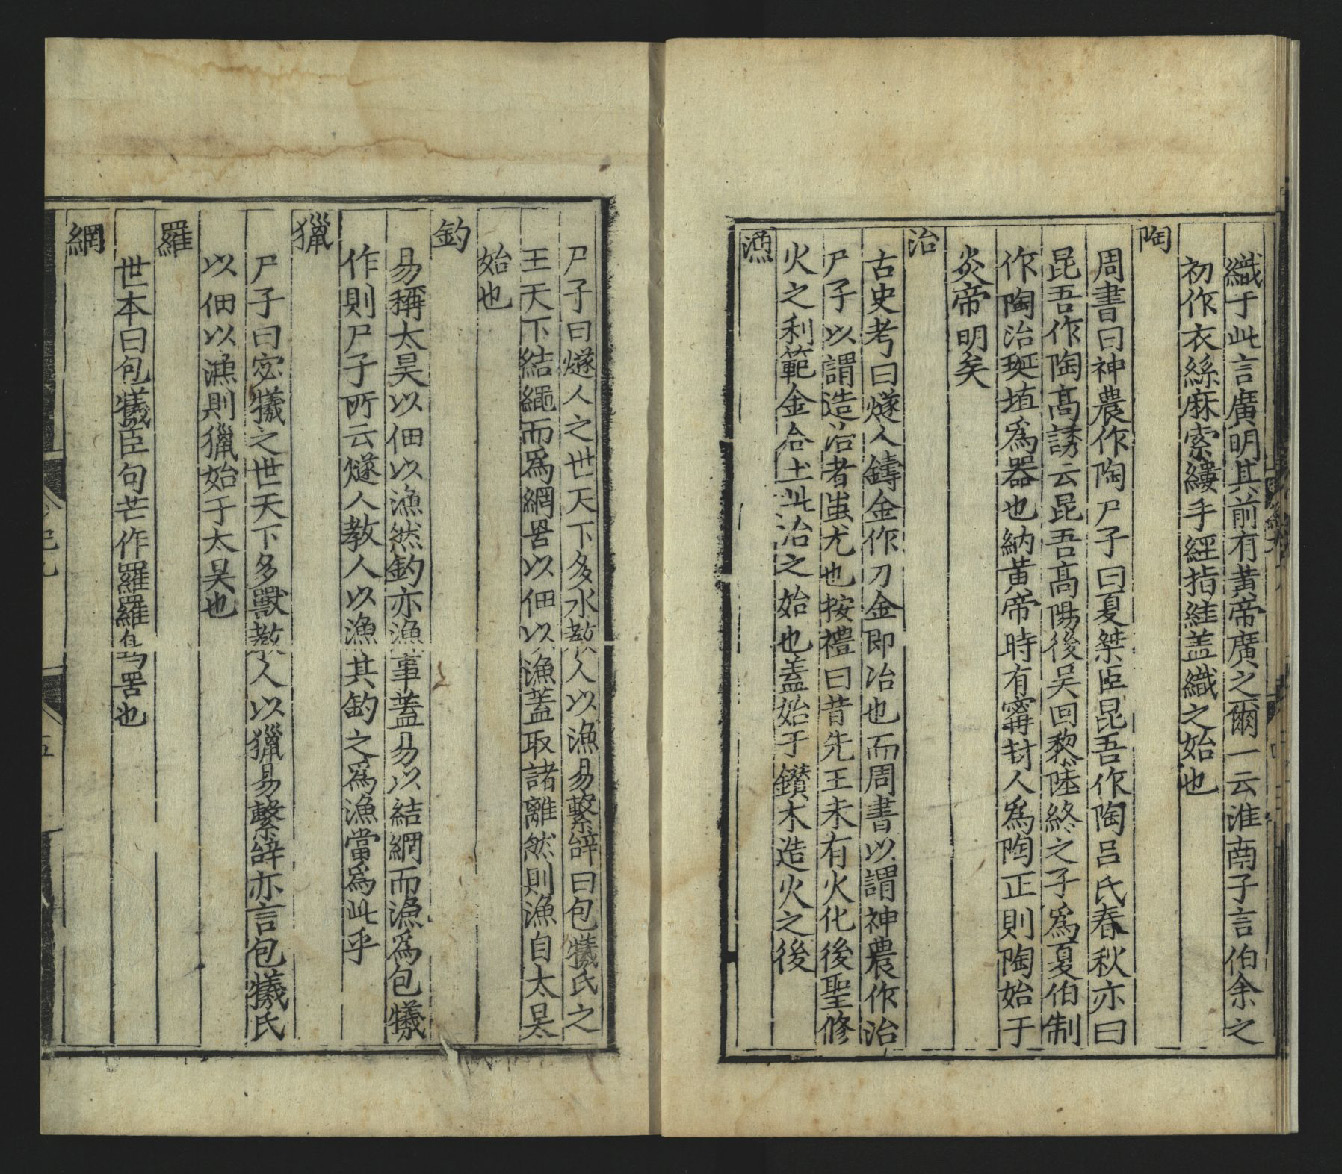 織于此言廣明其前有黃帝廣之爾一云淮南子言伯余之
初作衣絲麻索縷手經指絓蓋織之始也
陶
周書曰神農作陶尸子曰夏桀臣昆吾作陶呂氏春秋亦曰
昆吾作陶高誘云昆吾高陽後吳回黎陸終之子為夏伯制
作陶冶埏埴為器也納黃帝時有寗封人為陶正則陶始于
炎帝明矣
冶
古史考曰燧人鑄金作刀金即冶也而周書以謂神農作冶
尸子以謂造冶者蚩尤也按禮曰昔先王未有火化後聖修
火之利範金合土此冶之始也蓋始于鑚木造火之後
漁
尸子曰燧人之世天下多水教人以漁易繫辭曰包犧氏之
王天下結繩而為網罟以佃以漁蓋取諸離然則漁自太昊
始也
釣
易稱太昊以佃以漁然釣亦漁事蓋易以結網而漁為包犧
作則尸子所云燧人教人以漁其釣之為漁當為此乎
獵
尸子曰宓犧之世天下多獸教人以獵易繫辭亦言包犧氏
以佃以漁則獵始于太昊也
羅
世本曰包犧臣句芒作羅羅鳥罟也
網